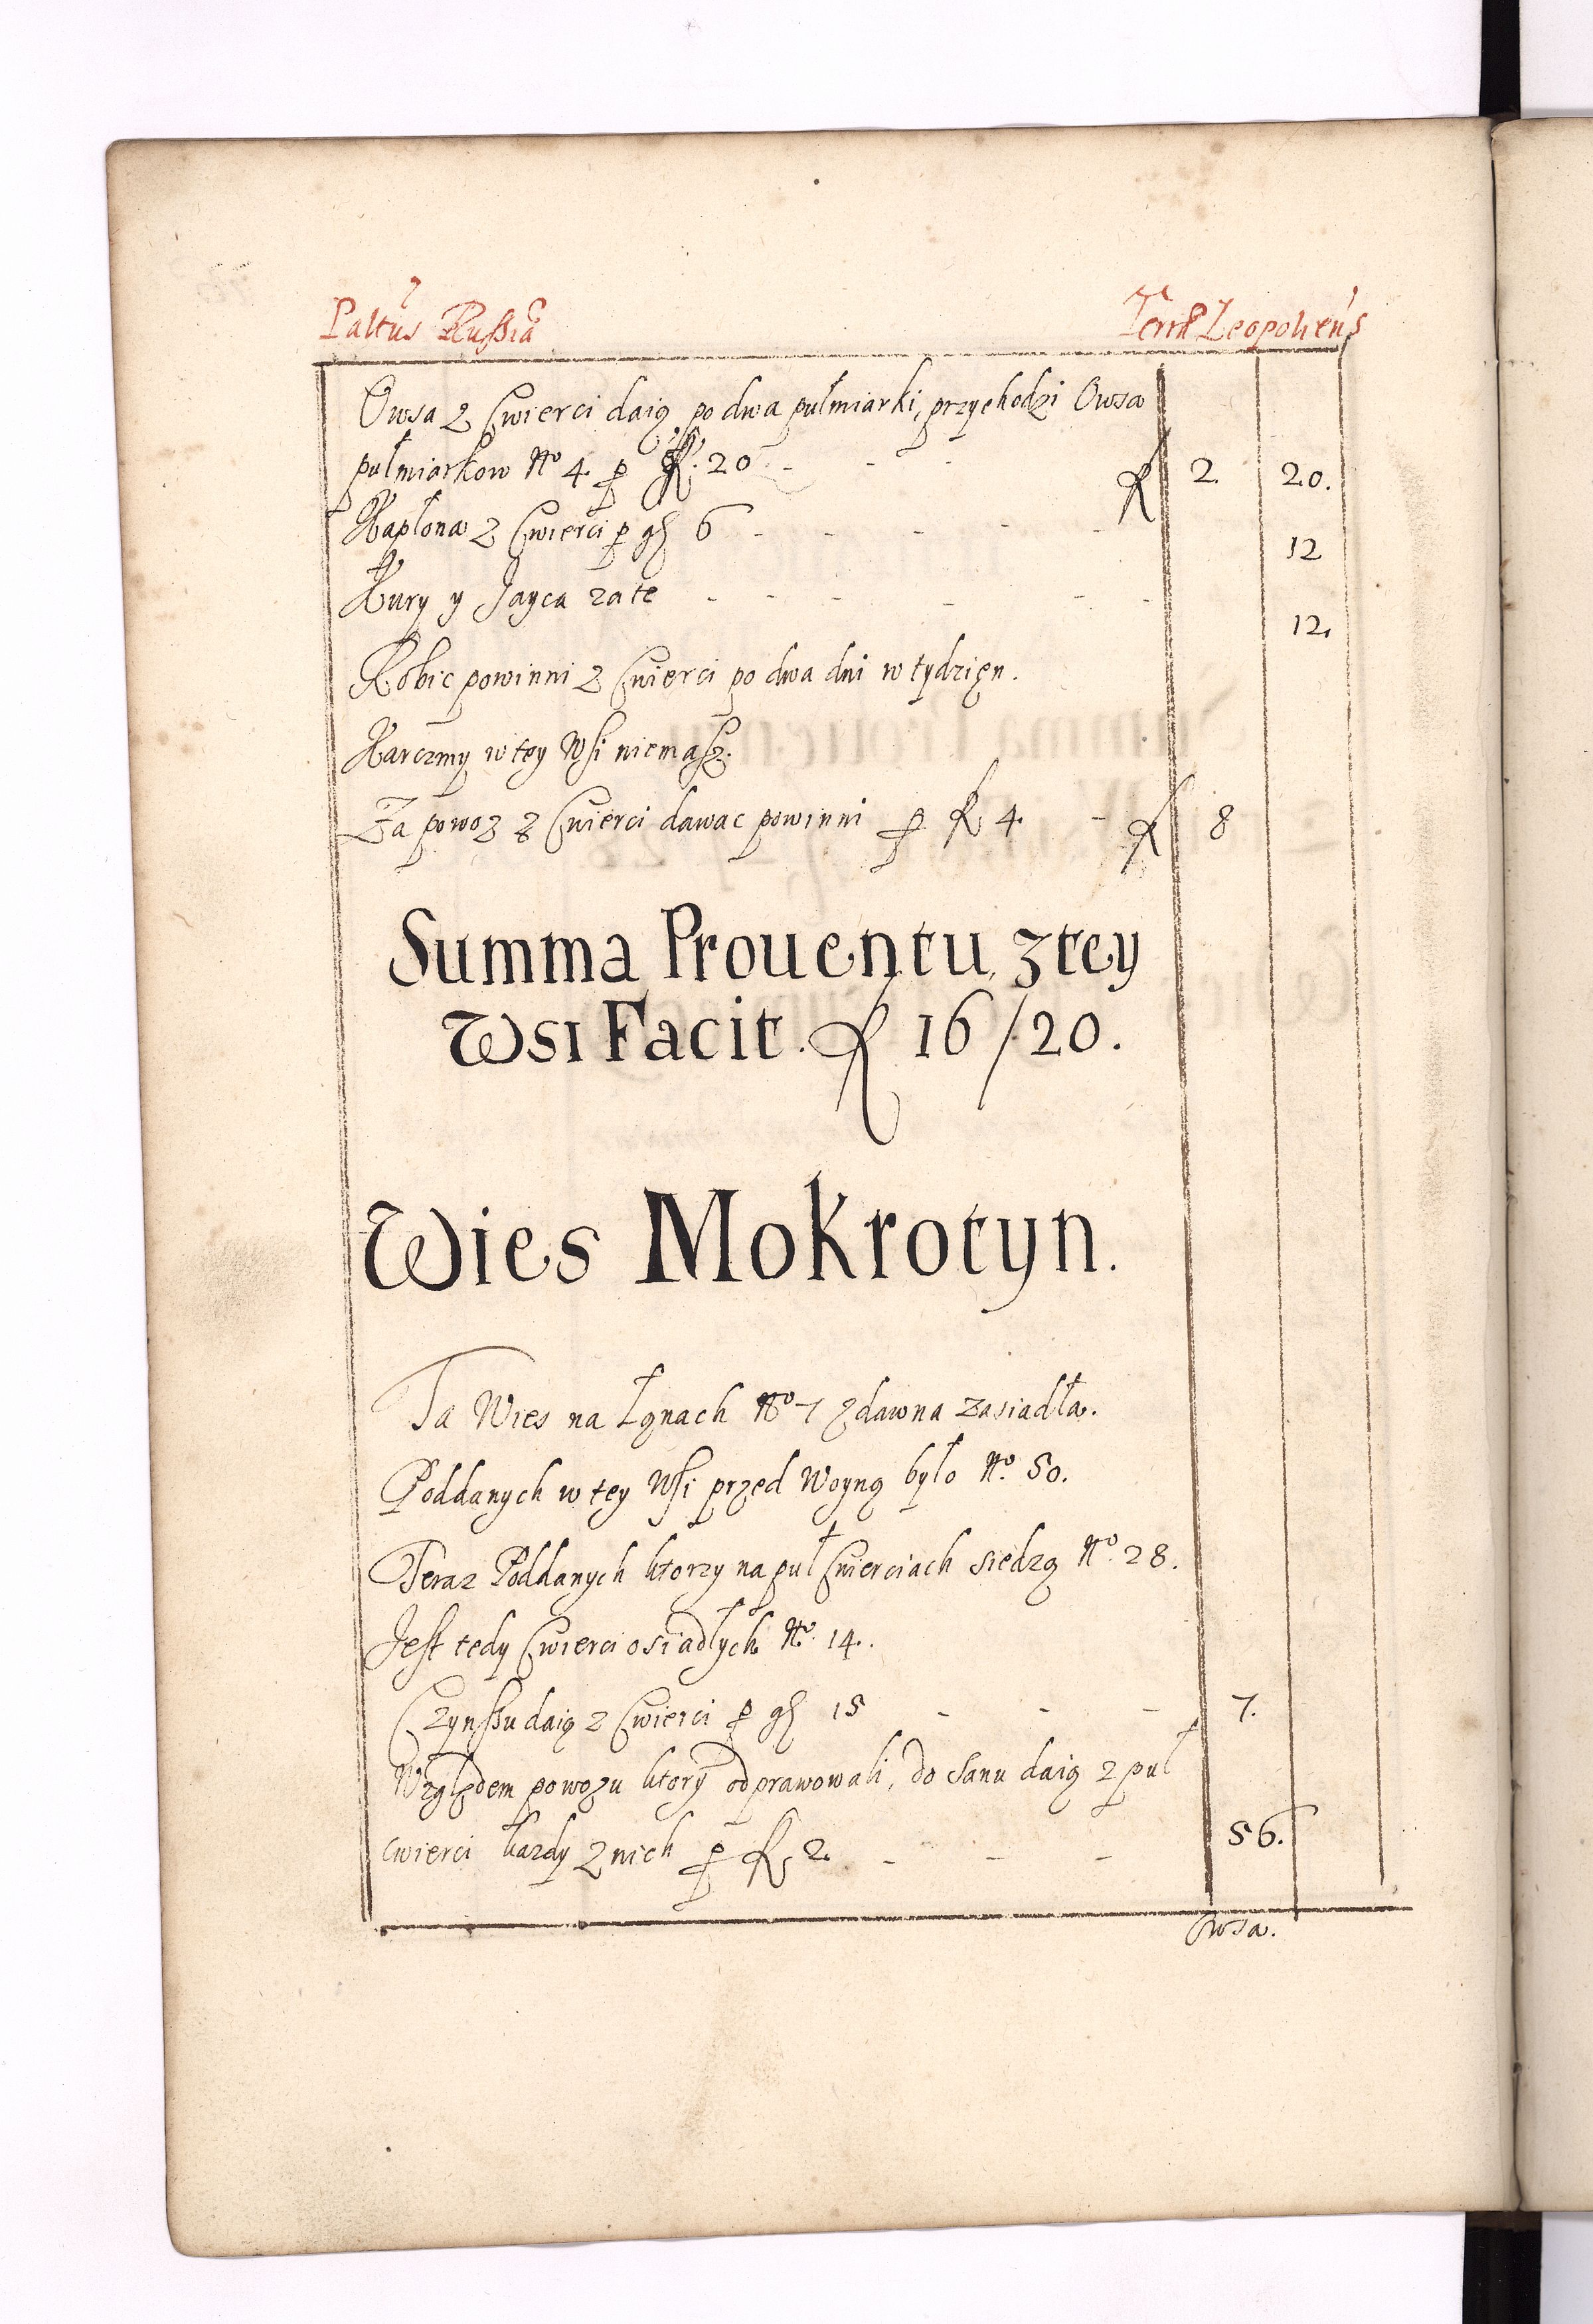 Paltus Russiæ Terræ Leopolien's
Owsa z Cwierci daią po dwa pułmiarki, przychodzi Owsa
pułmiarkow No 4. p 20 - - - f 2. 20.
Kapłona z Cwierci p gſ 6 - - - - - 12
Kury y Jayca zate - - - - - - 12.
Robic powinni z Cwierci po dwa dni w tydzięn.
Karczmy w tey Wsi niemasz.
Za powoz z Cwierci dawac powinni p f 4. - f 8
Summa Prouentu ztey
Wsi Facit. f 16/20.
Wies Mokrotyn.
Ta Wies na Łęnach No 7 zdawna zasiadła.
Poddanych w tey Wsi przed Woyną było No. 50.
Teraz Poddanych ktorzy na puł Cwierciach siedzą No. 28.
Jest tedy Cwierci osiadłych No. 14.
Czynszu daią z Cwierci p gſ 15 - - - 7.
Względem powozu ktory odprawowali, do Sanu daią z puł
cwierci kazdy z nich p f 2. - - - 56.
Owsa.